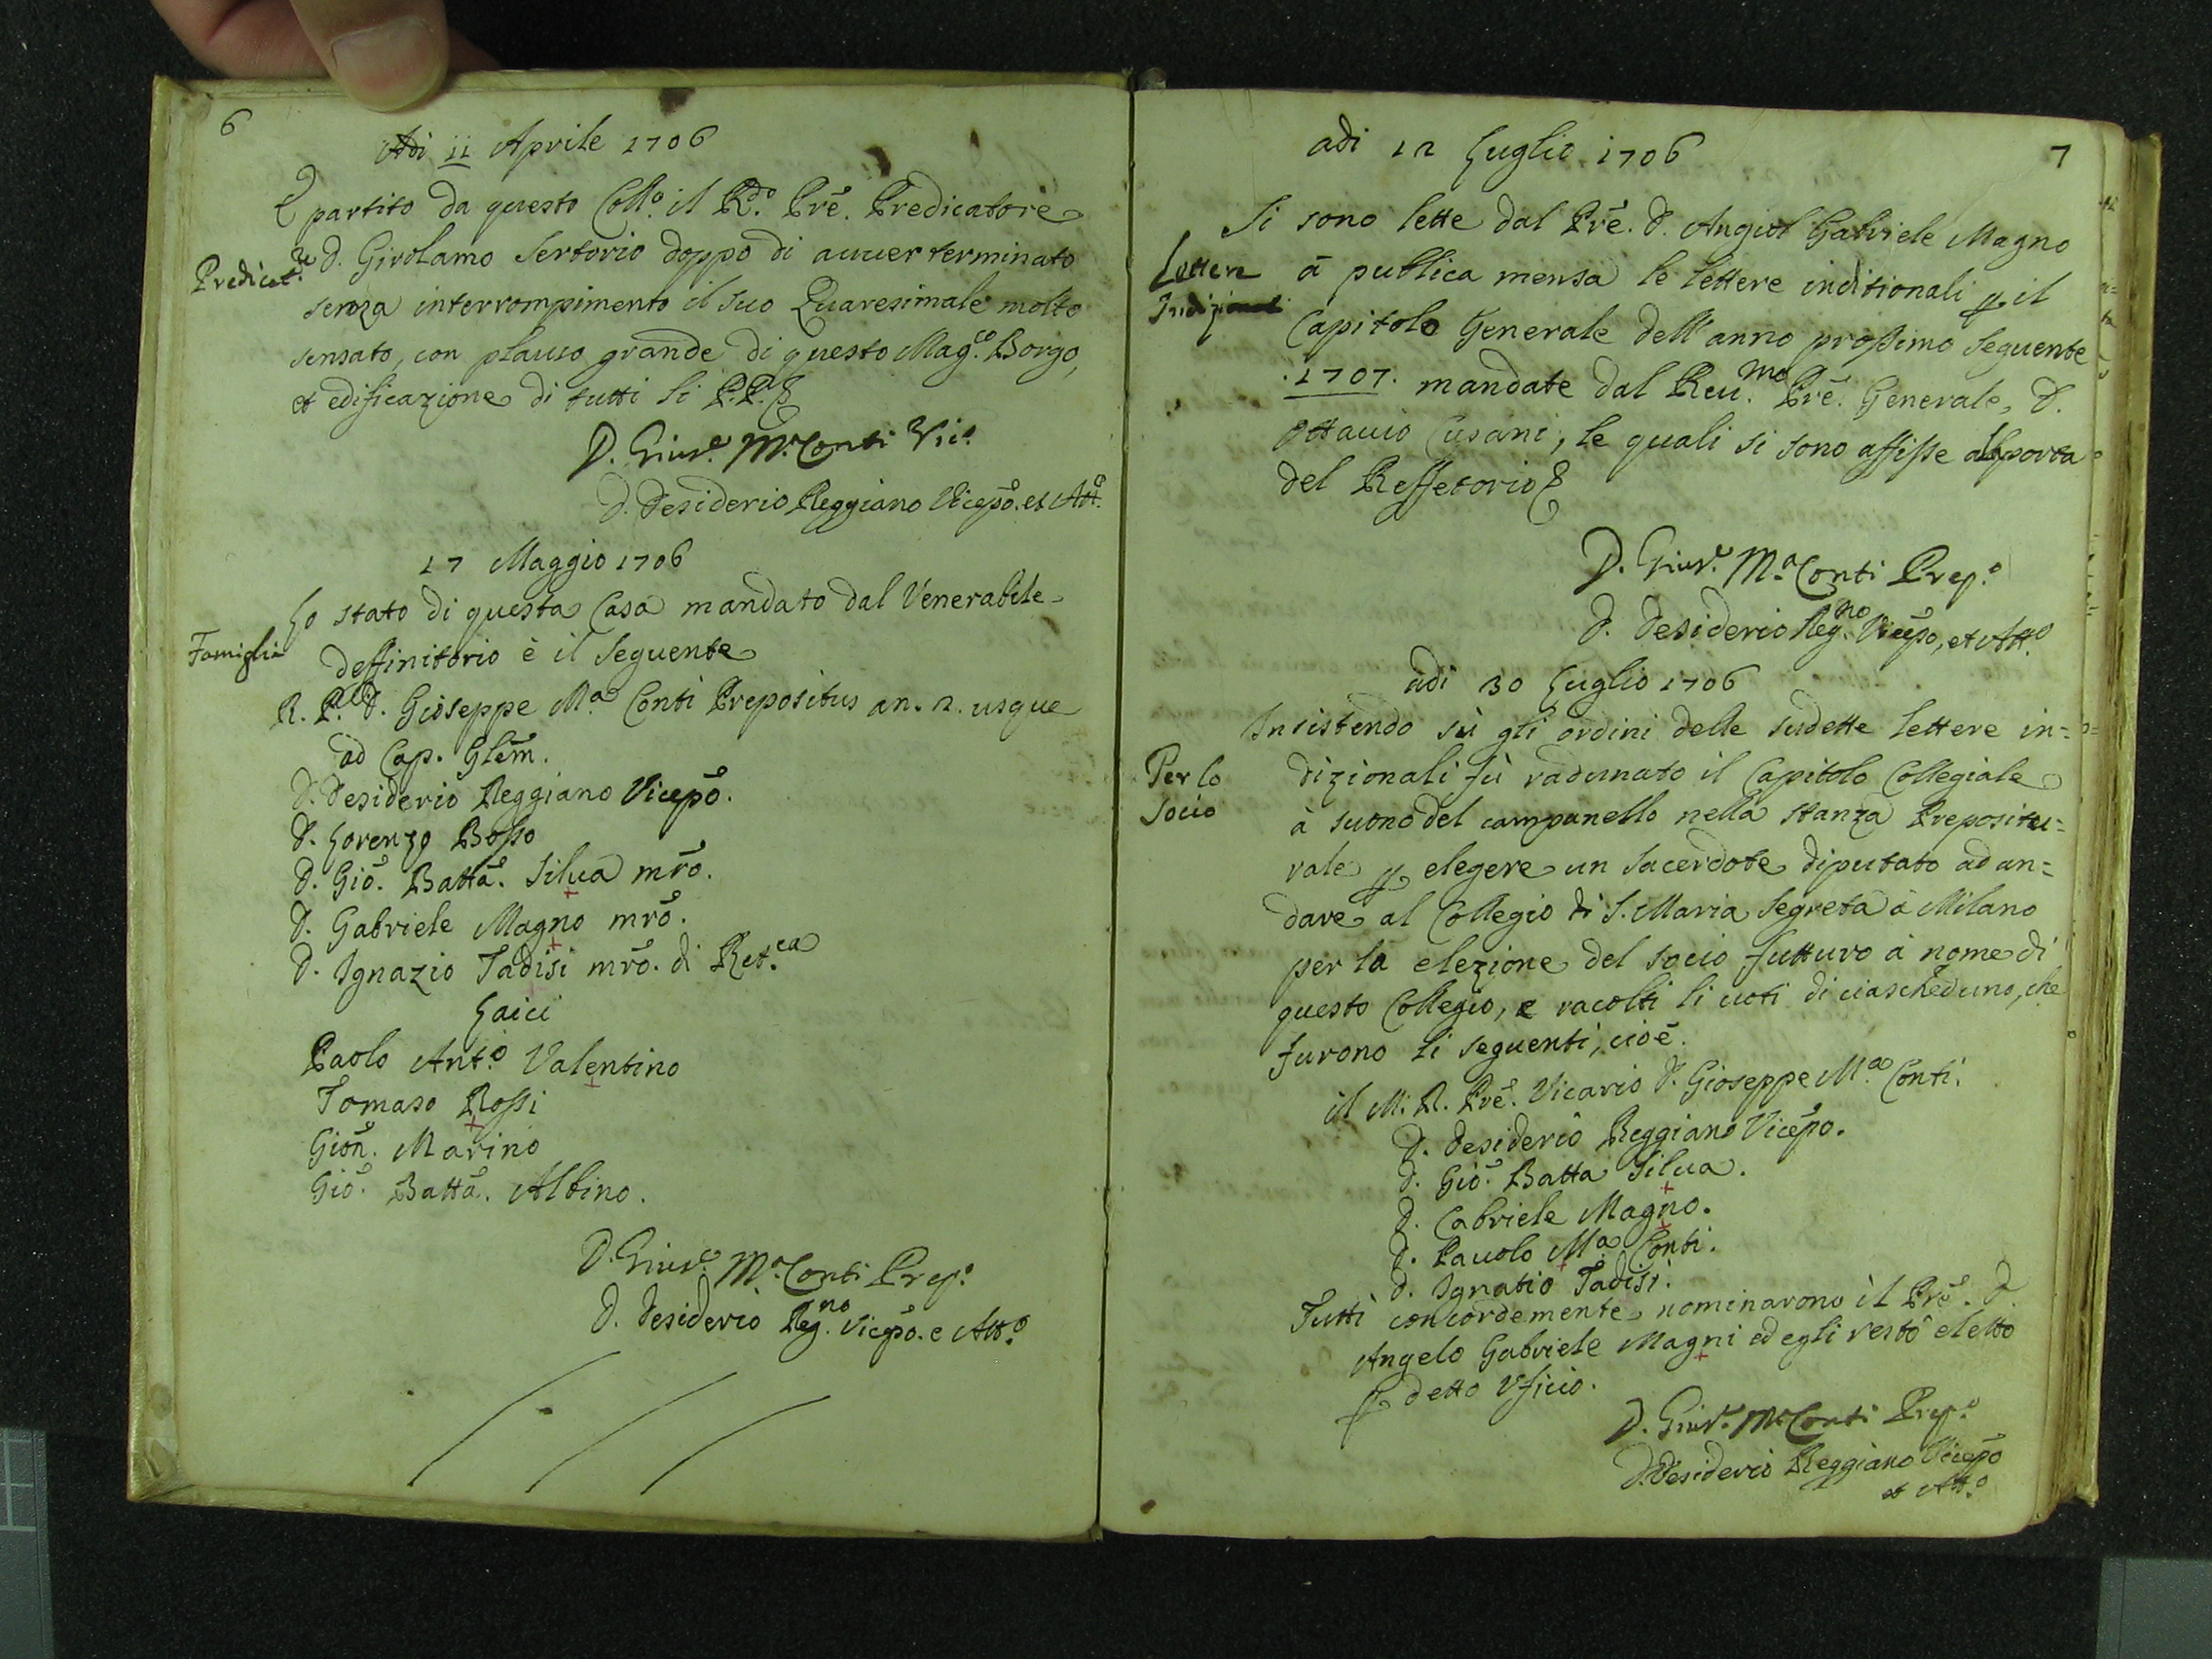 6
Adi 11 Aprile 1706
È partito da questo Coll.o il R.do Prē. Predicatore
Predicat.re
D. Girolamo Sertorio doppo di auuer terminato
senza interrompimento il suo Quaresimale molto
sensato, con plauso grande di questo Mag.co Borgo,
et edificazione di tutti li P.P.
D. Gius.e M.a Conti Vic.o
D. Desiderio Reggiano Vicepō. et Att.o
17 Maggio 1706
Lo stato di questa Casa mandato dal Venerabile
Famiglia
deffinitorio è il seguente
R. P. D. Gioseppe M.a Conti Prepositus an. 2. usque
ad Cap. Glēm.
D. Desiderio Reggiano Vicepō.
D. Lorenzo Bosso
D. Giō. Battā. Silua mrō.
D. Gabriele Magno mrō.
D. Ignazio Tadisi mrō. di Ret.ca
Laici
Paolo Ant.o Valentino
Tomaso Rossi
Gioñ. Marino
Giō. Battā. Albino.
D. Gius.e M.a Conti Prep.o
D. Desiderio Reg.no Vicepō. e Att.o
7
adi 12 Luglio 1706
Si sono lette dal Prē. D. Angiol Gabriele Magno
Lettere
Indizionali
à publica mensa le lettere inditionali p il
Capitolo Generale dell'anno prossimo seguente
.1707. mandate dal Reu.mo Prē. Generale, D.
Ottauio Cusani, le quali si sono affisse alla porta
del Reffetorio
D. Gius.e M.a Conti Prep.o
D. Desiderio Reg.no Vicepō, et Att.o
adi 30 Luglio 1706
Insistendo sù gli ordini delle sudette lettere in=
Per lo
Socio
dizionali fù radunato il Capitolo Collegiale
à suono del campanello nella stanza Prepositu=
rale p elegere un Sacerdote diputato ad an=
dare al Collegio di S. Maria Segreta à Milano
per la elezione del socio futturo à nome di
questo Collegio, e racolti li uoti di ciascheduno, che
furono li seguenti, cioè.
il M. R. Prē. Vicario D. Gioseppe M.a Conti.
D. Desiderio Reggiano Vicepō.
D. Giō. Batta Silua.
D. Gabriele Magno.
D. Pauolo M.a Conti.
D. Ignatio Tadisi.
Tutti concordemente nominarono il Prē. D.
Angelo Gabriele Magni ed egli restò eletto
p detto Vficio.
D. Gius.e M.a Conti Prep.o
D. Desiderio Reggiano Vicepō
et Att.o